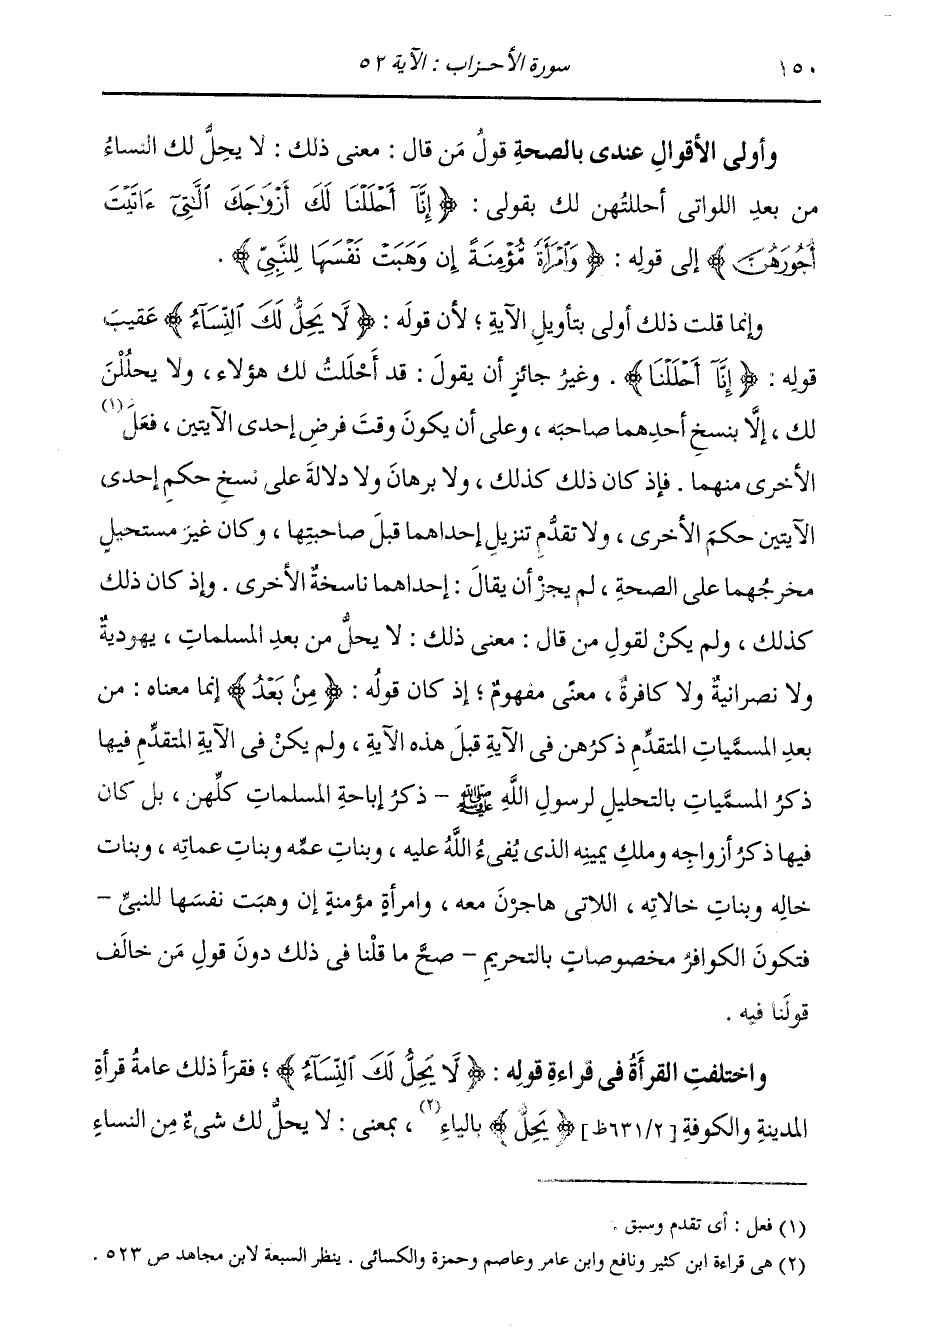 ١٥٠ سورة الأحزاب : الآية ٥٢
وأولى الأقوالِ عندى بالصحةِ قولُ مَن قال : معنى ذلك : لا يحِلُّ لك النساءُ
من بعدِ اللواتى أحللتُهن لك بقولى : ﴿ إِنَّآ أَحْلَلْنَا لَكَ أَزْوَٰجَكَ ٱلَّٰتِىٓ ءَاتَيْتَ
أُجُورَهُنَّ ﴾ إلى قولِه : ﴿ وَٱمْرَأَةً مُّؤْمِنَةً إِن وَهَبَتْ نَفْسَهَا لِلنَّبِىِّ ﴾ .
وإنما قلت ذلك أولى بتأويلِ الآيةِ ؛ لأن قولَه : ﴿ لَّا يَحِلُّ لَكَ ٱلنِّسَآءُ ﴾ عَقيبَ
قولِه : ﴿ إِنَّآ أَحْلَلْنَا ﴾ . وغيرُ جائزٍ أن يقولَ : قد أَحْلَلتُ لك هؤلاء ، ولا يحلُلْنَ
لك ، إلَّا بنسخِ أحدِهما صاحبَه ، وعلى أن يكونَ وقتَ فرضِ إحدى الآيتين ، فعَلَ(١)
الأخرى منهما . فإذ كان ذلك كذلك ، ولا برهانَ ولا دلالةَ على نسخِ حكمِ إحدى
الآيتين حكمَ الأخرى ، ولا تقدُّمِ تنزيلِ إحداهما قبلَ صاحبتِها ، وكان غيرَ مستحيلٍ
مخرجُهما على الصحةِ ، لم يجزْ أن يقالَ : إحداهما ناسخةٌ الأخرى . وإذ كان ذلك
كذلك ، ولم يكنْ لقولِ من قال : معنى ذلك : لا يحلُّ من بعدِ المسلماتِ ، يهوديةٌ
ولا نصرانيةٌ ولا كافرةٌ ، معنًى مفهومٌ ؛ إذ كان قولُه : ﴿ مِنۢ بَعْدُ ﴾ إنما معناه : من
بعدِ المسمَّياتِ المتقدِّمِ ذكرُهن فى الآيةِ قبلَ هذه الآيةِ ، ولم يكنْ فى الآيةِ المتقدِّمِ فيها
ذكرُ المسمَّياتِ بالتحليلِ لرسولِ اللَّهِ ﷺ - ذكرُ إباحةِ المسلماتِ كلِّهن ، بل كان
فيها ذكرُ أزواجِه وملكِ يمينِه الذى يُفىءُ اللَّهُ عليه ، وبناتِ عمِّه وبناتِ عماتِه ، وبنات
خالِه وبناتِ خالاتِه ، اللاتى هاجرْنَ معه ، وامرأةٍ مؤمنةٍ إن وهبَت نفسَها للنبىِّ -
فتكونَ الكوافرُ مخصوصاتٍ بالتحريمِ - صحَّ ما قلْنا فى ذلك دونَ قولِ مَن خالَف
قولَنا فيه .
واختلفتِ القرأَةُ فى قراءةِ قولِه : ﴿ لَّا يَحِلُّ لَكَ ٱلنِّسَآءُ ﴾ ؛ فقرَأ ذلك عامةُ قرأةِ
المدينةِ والكوفةِ [٦٣١/٢ظ] ﴿ يَحِلُّ ﴾ بالياءِ(٢) ، بمعنى : لا يحلُّ لك شىءٌ مِن النساءِ
(١) فعل : أى تقدم وسبق .
(٢) هى قراءة ابن كثير ونافع وابن عامر وعاصم وحمزة والكسائى . ينظر السبعة لابن مجاهد ص ٥٢٣ .